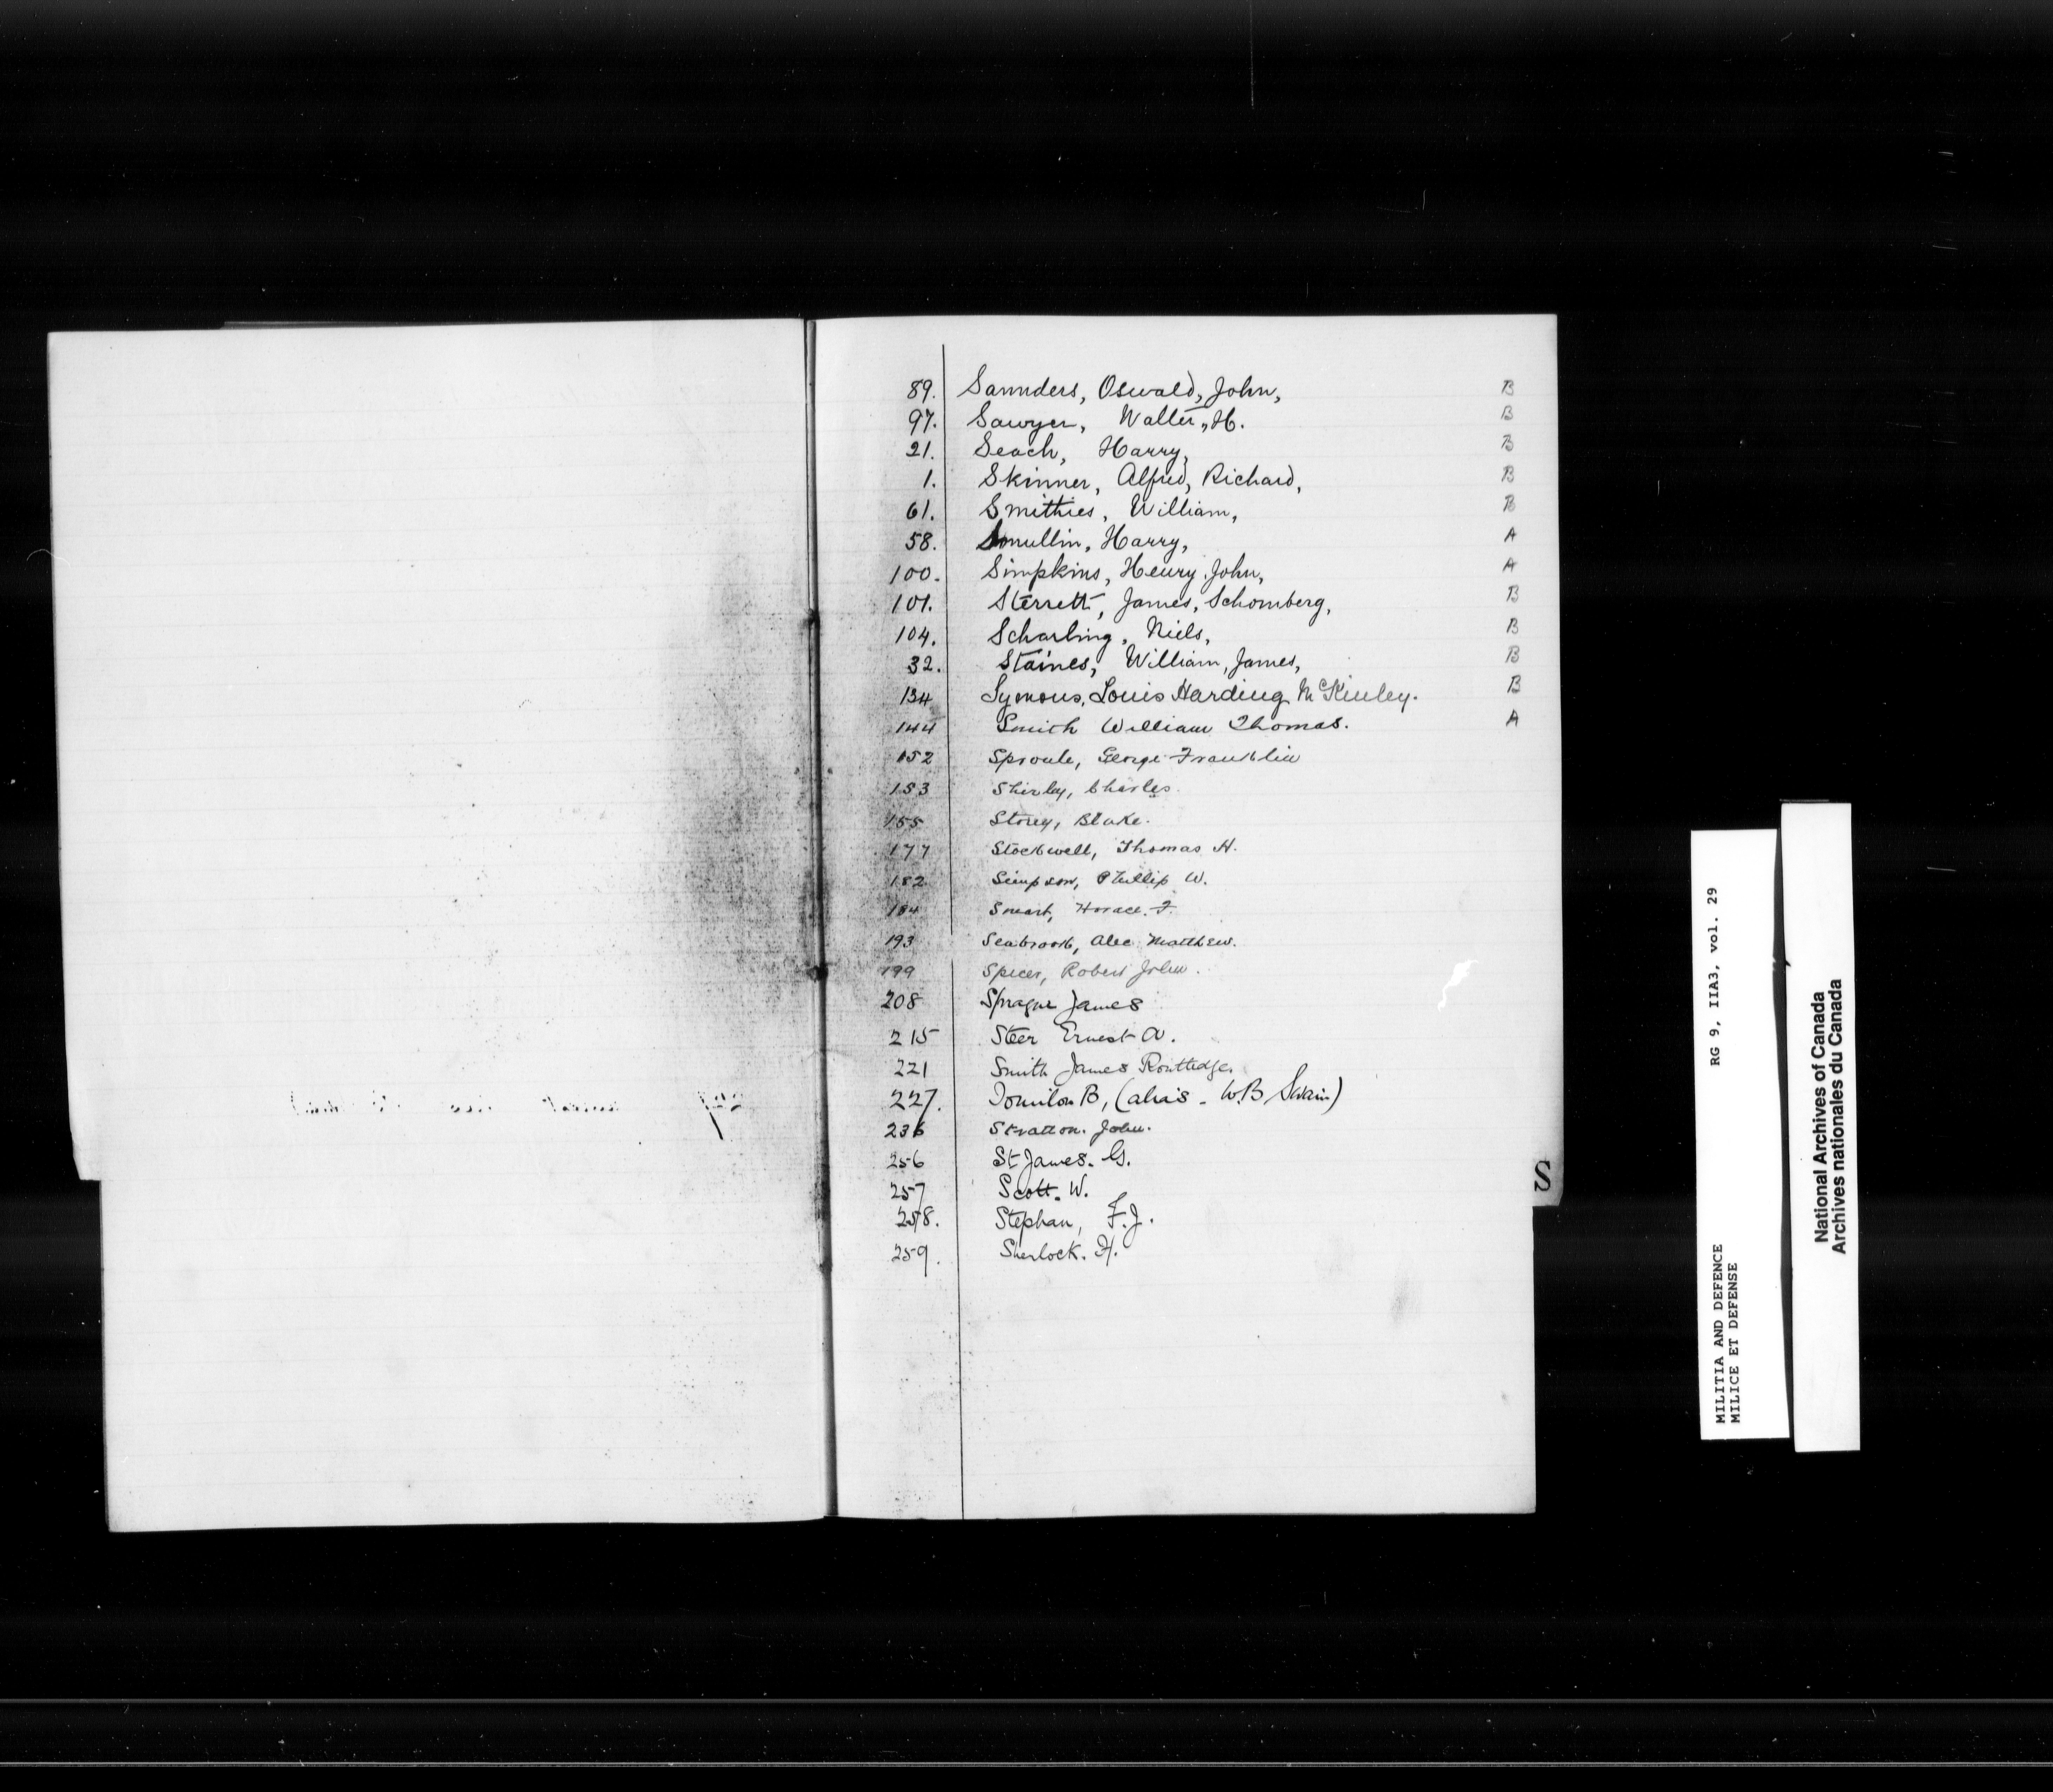 89. Saunders, Oswald, John, B
97. Sawyer, Walter, H. B
21. Seach, Harry, B
1. Skinner, Alfred, Richard, B
61. Smithies, William, B
58. Smullin, Harry, A
100. Simpkins, Henry, John, A
101. Sterrett, James, Schomberg, B
104. Scharling, Niels, B
32. Staines, William, James, B
134 Symons, Louis Harding McKinley. B
144 Smith William Thomas. A
152 Sproule, George Franklin
153 Shirley, Charles.
155 Storey, Blake.
177 Stockwell, Thomas H.
182 Simpson, Phillip W.
184 Smart, Horace. F.
193 Seabrook, Alec Matthew.
199 Spicer, Robert John.
208 Sprague James
215 Steer Ernest A.
221 Smith James Routledge.
227. B, (alias - W.B Swain)
236 Stratton. John.
256 St James. G.
257 Scott. W.
258. Stephan, F.J.
259. Sherlock. H.
S
RG 9, IIA3, vol. 29
MILITIA AND DEFENCE
MILICE ET DEFENSE
National Archives of Canada
Archives nationales du Canada